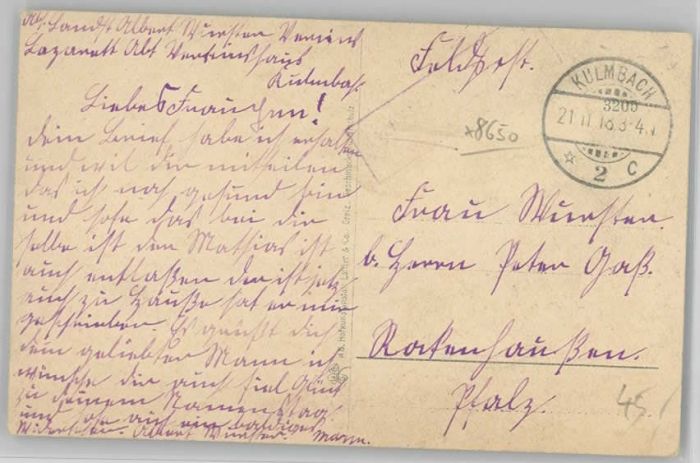 Abs. Landst. Albert Wurster Vereins
Lazarett Abt Vereinshaus
Kulmbach
Liebes Frauchen!
dein Brief habe ich erhalten
und wil dir mitteilen
das ich noch gesund bin
und hofe das bei dir
selbe ist den Mathias ist
auch entlaßen der ist jetz
auch zu Hauße hat er mir
geschrieben. Es grüßt dich
dein geliebter Mann ich
wünsche dir auch fiel Glück
zu deinem Namenstag
und auf ein baldiges
Widersehen. Albert Wurster. Mann.
Feldpost.
KULMBACH
21 11 18 3-4 N
2 c
*8650
Frau Wurster.
b. Herrn Peter Gaß.
Rokenhaußen.
Pfalz.
45